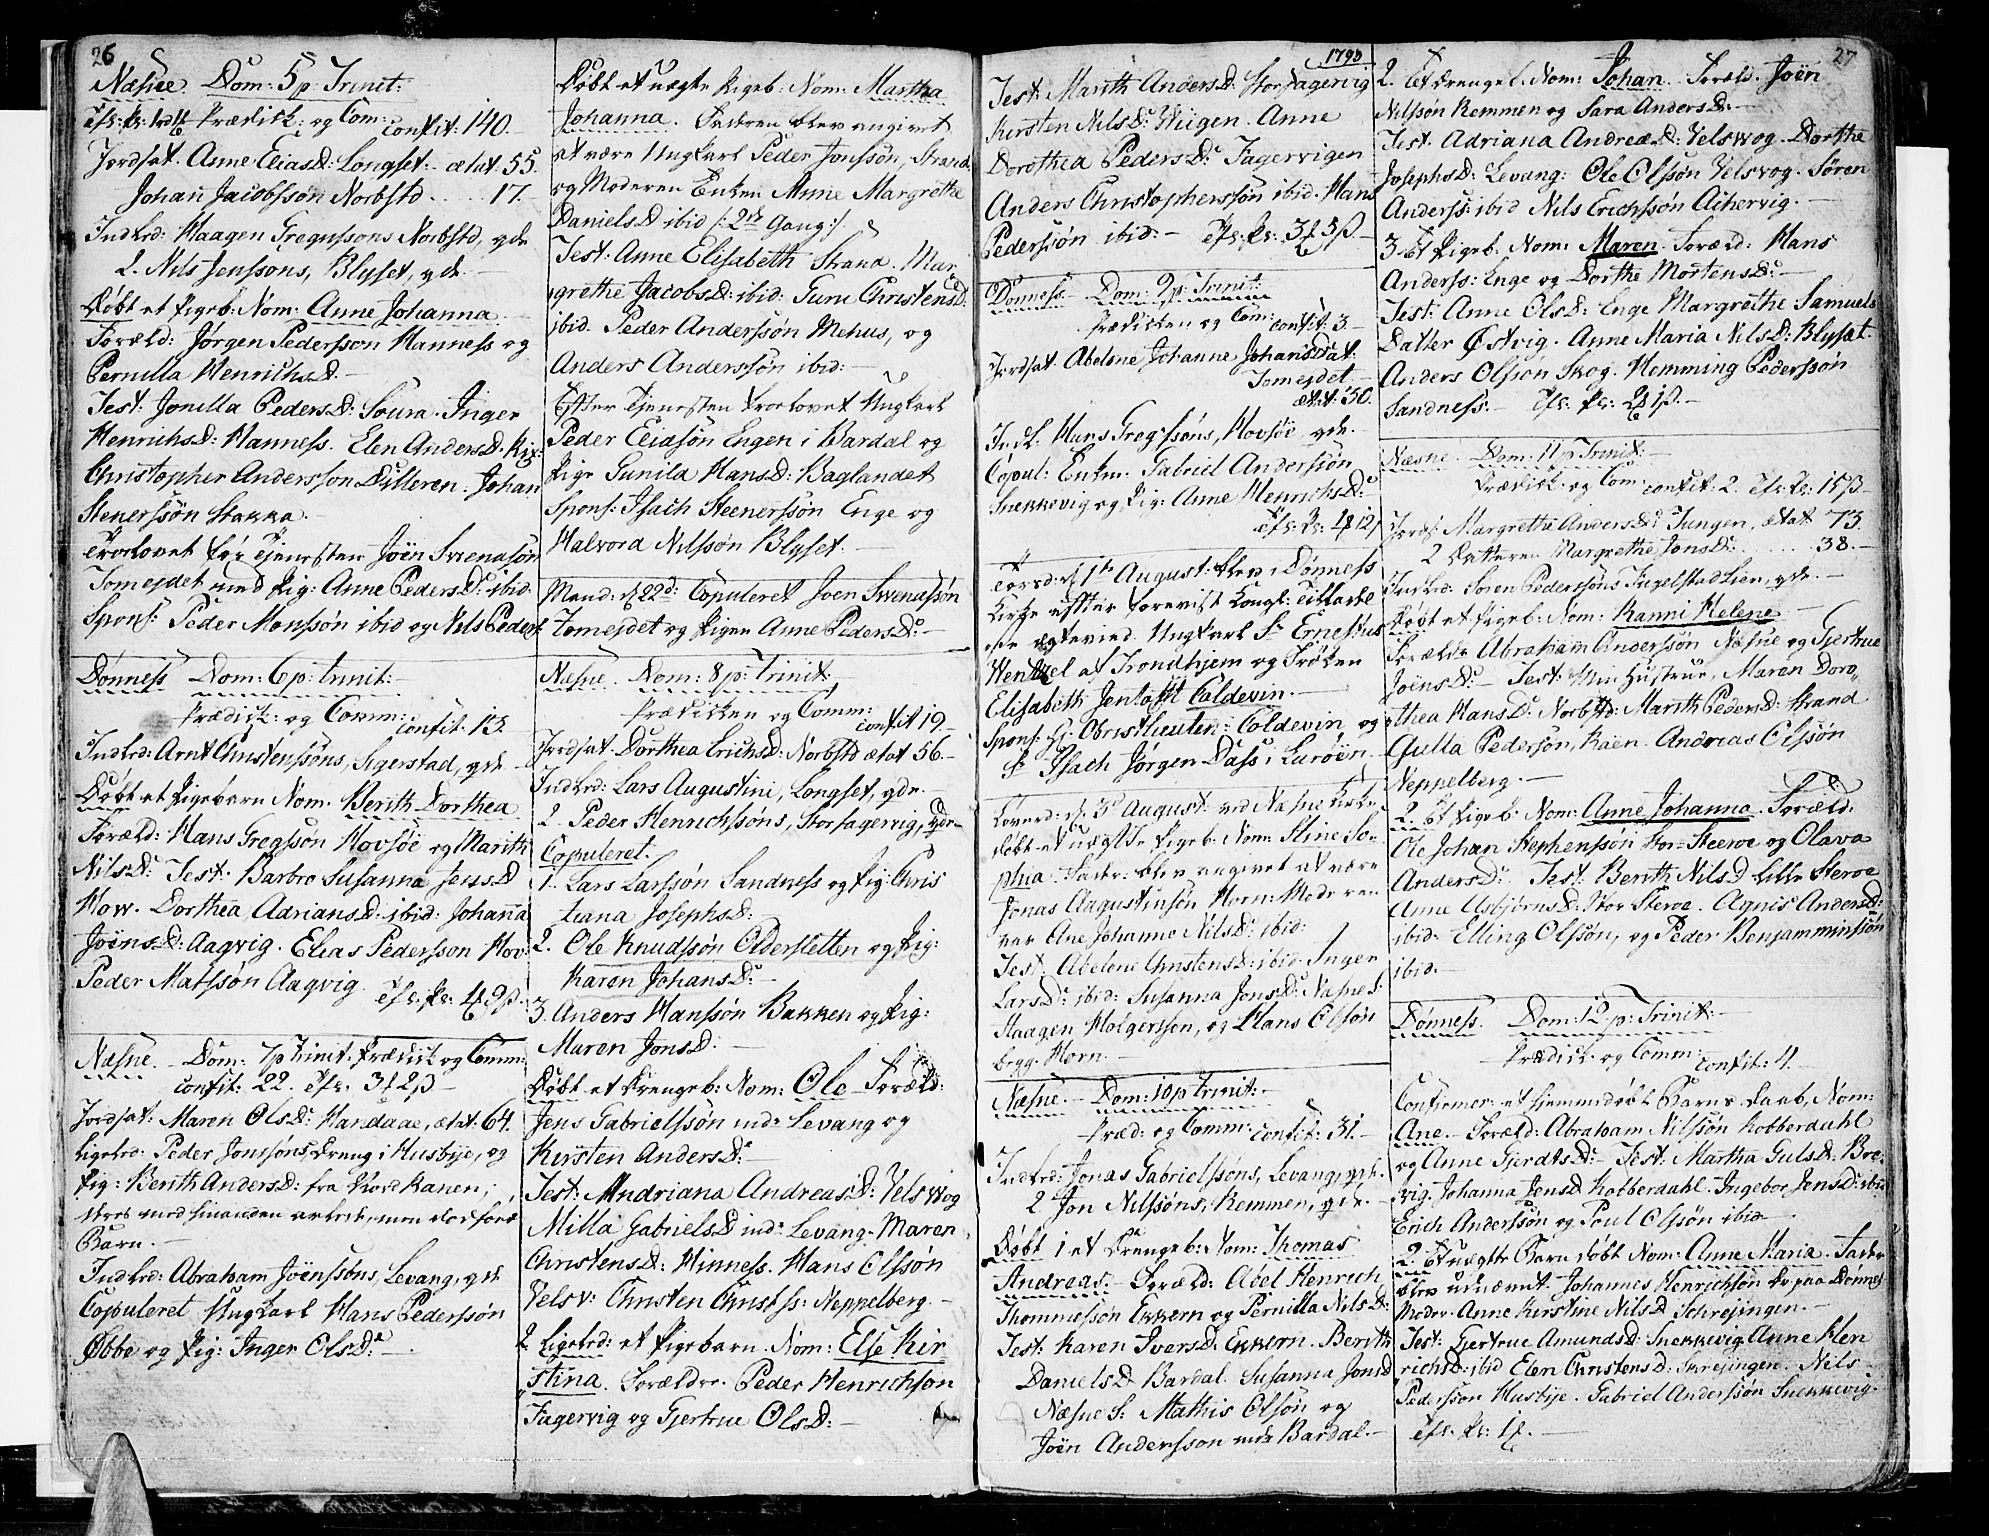 26
Næsne Dom: 5 p: Trinit:
Prædik: og Com: confit: 140.
Jordsat. Anne EliasD: Longset. ætat. 55.
Johan Jacobssøn Norbstd. .... 17.
Indled: Haagen Gregussons Norbstd, qde
2. Nils Jenssons, Blyset, qde.
Døbt et Pigeb: Nom: Anne Johanna.
Foræld: Jørgen Pedersson Hanness og
Pernilla HenrichsD.
Test: Jonilla PedersD: Soura. Inger
HenrichsD: Hanness. Elen AndersD.
Christopher Andersson Dilleren. Johan
Stenerssøn Stokka.
Trolovet før Tjenesten Joen Svendssøn
Tomejdet med Pig: Anne PedersD: ibid.
Spons: Peder Monssøn ibid og Nils Peders:
Dønness Dom: 6 p: Trinit:
Prædik: og Comm: confit. 13.
Indled: Arnt Christenssøns, Sigerstad, qde
Døbt et Pigebarn Nom. Berith Dorthea
Foræld: Hans Gregssøn Hovsøe og Marith
NilsD: Test. Barbro Susanna JensD
Hov. Dorthea AdriansD: ibid: Johanna
JoensD: Aagvig. Elias Pedersson Hov:
Peder Matssøn Aagvig.
Næsne Dom: 7 p Trinit. Prædik og Comm:
confit: 22.
Jordsat: Maren OlsD: Handaae, ætat. 64.
Ligeled: Peder Jonssøns Dreng i Husbye, og
Pig: Berith AndersD: fra Nord Ranen;
Barn.
Indled: Abraham Joenssøns, Levang, qde
Copuleret Ungkarl Hans Pederssøn
Øbbe og Pig: Inger OlsD:
Døbt et uægte Pigeb: Nom: Martha
Johanna. Faderen blev angivet
at være Ungkarl Peder Jonssøn, Strand,
og Moderen Enken Anne Margrethe
DanielsD ibid /: 2den Gang :/
Test: Anne Elisabeth Strand. Mar
grethe JacobsD: ibid: Guru ChristensD:
ibid. Peder Anderssøn Mehus, og
Anders Anderssøn ibid:
Efter Tjenesten trolovet Ungkarl
Peder Eliasøn Engen i Bardal og
Pige Gunild HansD: Baglandet
Spons: Isach Steenerssøn Enge og
Halvord Nilssøn Blyset.
Mand: d 22d: Copuleret Joen Svendssøn
Tomejdet og Pigen Anne PedersD:
Næsne Dom: 8 p: Trinit:
Prædiken og Comm: confit 19.
Jordsat. Dorthea ErichsD: Norbstd ætat 56.
Indled: Lars Augustini, Longset, qde.
2. Peder Henrichssøns, Storfagervig, qde
Copuleret.
1. Lars Larssøn Sandness og Pig: Chris
tiana JosephsD:
2. Ole Knudssøn Oldersletten og Pig:
Karen JohansD:
3. Anders Hanssøn Bakken og Pig:
Maren JonsD:
Døbt et Drengeb: Nom: Ole Foræld:
Jens Gabrielssøn ind: Levang og
Kirsten AndersD:
Test: Andriana AndreasD: Velsvog
Milla GabrielsD ind: Levang. Maren
ChristensD: Hinness. Hans Olssøn
Velsv: Christen Christss: Neppelberg.
2. Ligeled: et Pigebarn. Nom: Else Kir
stina. Forældre. Peder Henrichsøn
Fagervig og Gjertrue OlsD:
1793
Test: Marith AndersD: Storfagervig
Kirsten NilsD: Wiigen. Anne
Dorothea PedersD: Fagervigen
Anders Christopherssøn ibid. Hans
Pederssøn ibid:
Dønness Dom: 9 p: Trinit:
Prædiken og Com: confit: 3.
Jordsat. Abelone Johanne JohansDat:
Tomejdet
ætat: 30.
Indl: Hans Gregssøns, Hovsøe qde.
Copul: Enkm. Gabriel Anderssøn
Snekkevig og Pig: Anne HenrichsD:
Torsd: d 1te August: blev i Dønness
Kirke efter forevist Kongl: Tilladel
se Ungkarl Sr. Ernestus
Wensel af Trondhjem og Frøken
Elisabeth Jentoft Coldevin.
Spons: Hr. Obristlieuten: Coldevin og
Sr Isach Jørgen Dass i Lurøen.
Løverd: d. 3d August: ved Næsne Kirke
døbt et uægte Pigeb: Nom: Stine So
phia. Fader blev angivet at være
Jonas Augustinsøn Horn: Moderen
var Ane Johanne NilsD: ibid:
Test. Abelone ChristensD: ibid. Inger
LarsD: ibid: Susanna JonsD: Næsne S:
Haagen Holgersson, og Hans Olssøn
begg: Horn.
Næsne. Dom: 10 p Trinit:
Præd: og Comm: confit: 31.
Indled: Jonas Gabrielssøns, Levang, qde.
2 Jon Nilssøns, Remmen, qde.
Døbt 1 et Drengeb: Nom: Thomas
Andreas. Foræld: Abel Henrich
Thommessøn Ekkern og Pernilla NilsD:
Test: Karen IversD. Ekkern. Berith
DanielsD Bardal. Susanna JonsD
Næsne S: Mathis Olssøn og
Joen Andersson inde Bardal.
27
2. Et Drengeb. Nom: Johan. Foræld. Joen
Nilssøn Remmen og Sara AndersD:
Test. Adriana AndreæD: Velsvog. Dorthe
JosephsD: Levang: Ole Olssøn Velsvog. Søren
Anderss: ibid Nils Erichssøn Aichervig.
3. Et Pigeb. Nom: Maren. Foræld: Hans
Anderss: Enge og Dorthe MortensD:
Test: Anne OlsD: Enge Margrethe Samuels
Datter Østvig. Anne Maria NilsD: Blyset.
Anders Olssøn Skog. Hemming Pederssøn
Sandness.
Næsne. Dom: 11 p Trinit:
Prædik. og Com: confit: 2.
Jords: Margrethe AndersD: Tungen, ætat. 73.
2 Datteren Margrethe JonsD: ..... 38.
Indled: Søren Pederssøns Ingelstad Lien, qde.
Døbt et Pigeb. Nom: Ranni Helene
Forældr Abraham Anderssøn Næsne og Gjertrue
JoensD: Test: Min Hustrue, Maren Doro
thea HansD: Norbstd: Marith PedersD: Strand
Gulla Pedersøn, Raen. Andreas Olssøn
Neppelberg.
2. Et Pigeb. Nom: Anne Johanna. Foræld:
Ole Johan Stephenssøn Stor-Steeroe og Olava
AndersD: Test. Berith NilsD Lille Steroe
Anne AsbjørnsD: Stor Steroe. Agnis AndersD:
ibid: Elling Olssøn, og Peder Benjamminssøn
ibid.
Dønness. Dom: 12 p: Trinit:
Prædik: og Comm: confit: 4.
Confirmer: et hjemmedøbt Barns Daab, Nom:
Ane. Foræld: Abraham Nilssøn Kobberdahl
og Anne GjerdtsD: Test: Martha GulsD: Bre:
vig. Johanna JensD Kobberdahl. Ingebor JensD: ibid
Erich Anderssøn og Poul Olssøn ibid
2. Et uægte Barn døbt Nom: Anne Maria. Fader
blev udnævnt Johannes Henrichsøn paa Dønnes
Moder. Anne Kirstine NilsD Schrejingen.
Test: Gjertrue AmundsD: Snekkevig Anne Hen
richsD: ibid Elen ChristensD: Skrejingen. Nils
Pedersson Husbye. Gabriel Anderssøn Snekkevig.